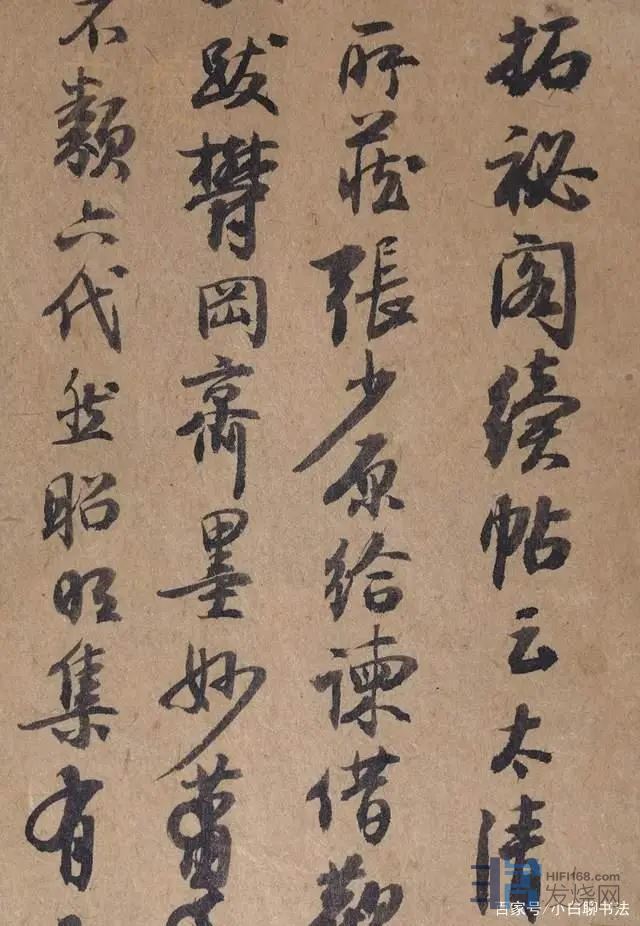 拓祕閣續帖云太清
所藏張少原給諫借觀
跋鬱岡齋墨妙
不類六代然昭明集有
HIFI168.com
发烧网
百家号/小白聊书法